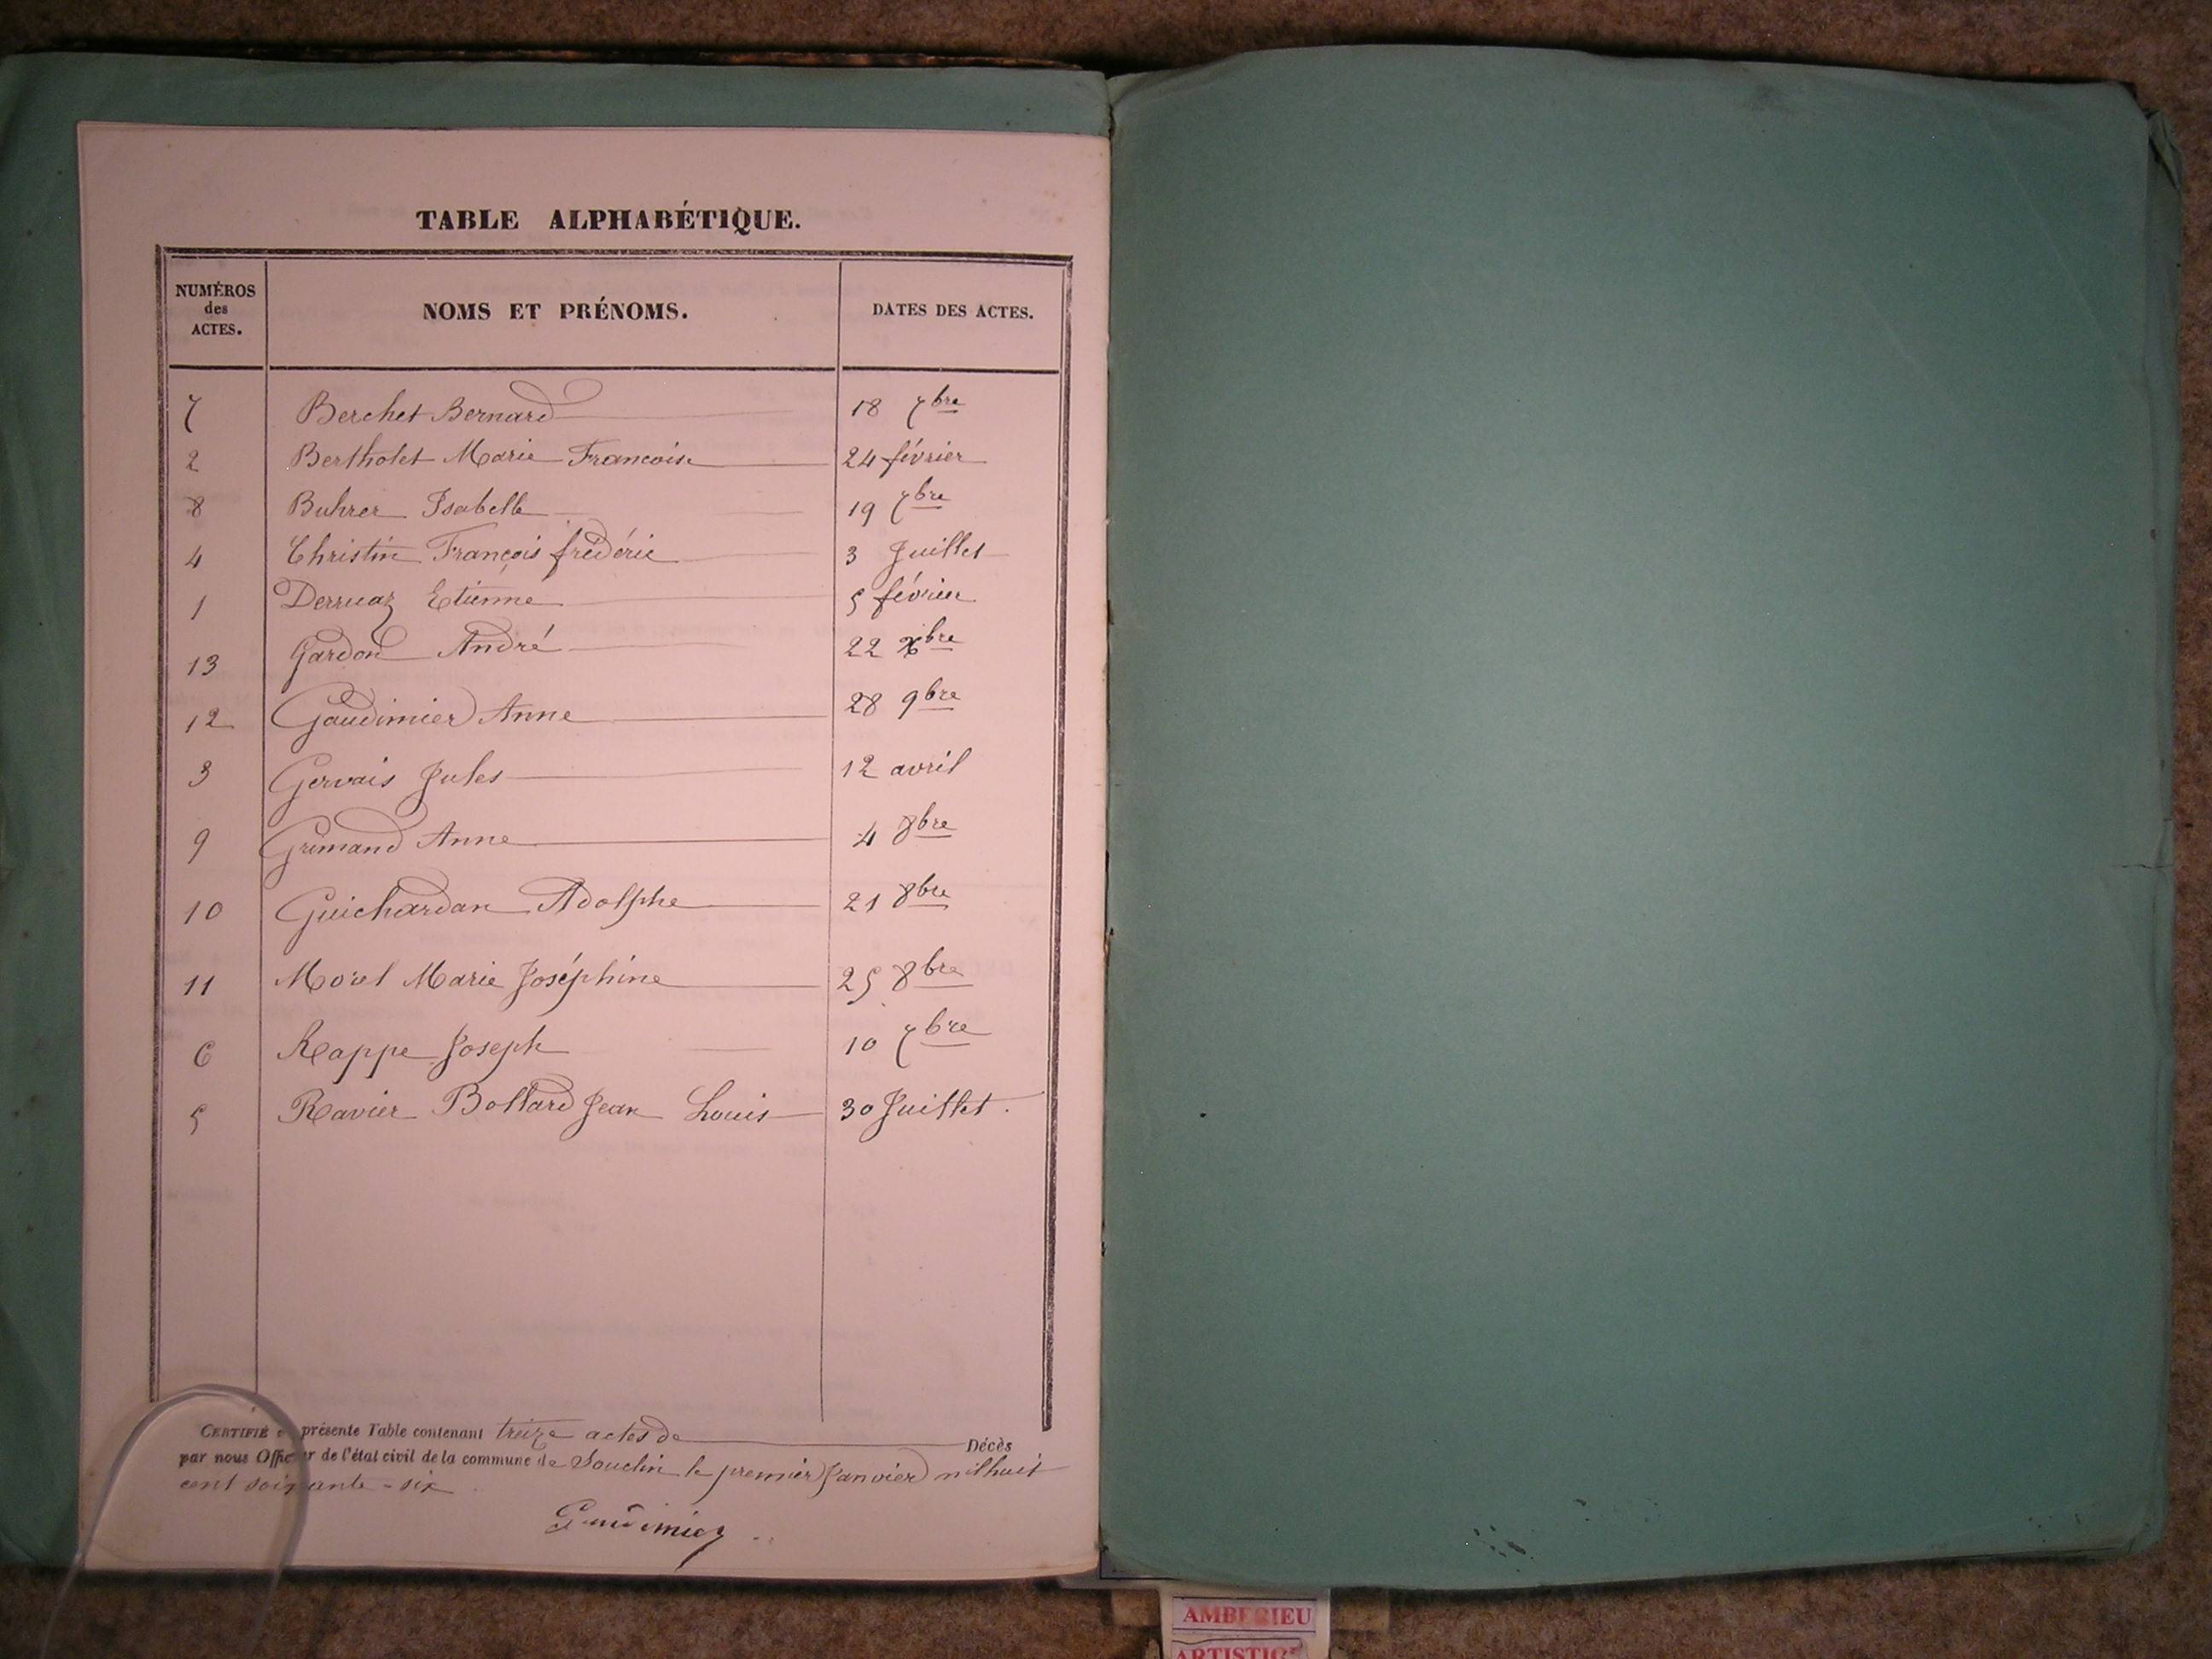 TABLE ALPHABÉTIQUE.
NUMÉROS des ACTES. NOMS ET PRÉNOMS. DATES DES ACTES.
7 Berchet Bernard 18 7bre
2 Bertholet Marie Francoise 24 février
8 Buhrer Isabelle 19 7bre
4 Christin François frédéric 3 Juillet
1 Derruaz Etienne 5 février
13 Gardon André 22 Xbre
12 Gaudimier Anne 28 9bre
3 Gervais Jules 12 avril
9 Grimand Anne 4 8bre
10 Guichardan Adolphe 21 8bre
11 Morel Marie Joséphine 25 8bre
6 Rappe Joseph 10 7bre
5 Ravier Bollard Jean Louis 30 Juillet.
CERTIFIÉ présente Table contenant treize actes de Décès
par nous Officier de l'état civil de la commune de Souclin le premier Janvier mil huit
cent soixante-six
Gaudimier
AMBERIEU
ARTISTIQ